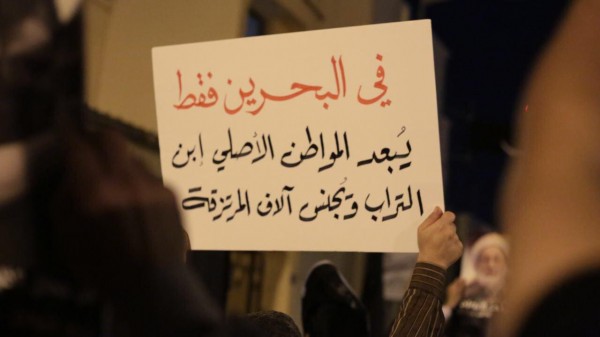 في البحرين فقط
يُبعد المواطن الأصلي إبن
التراب ويُجنس آلاف المرتزقة